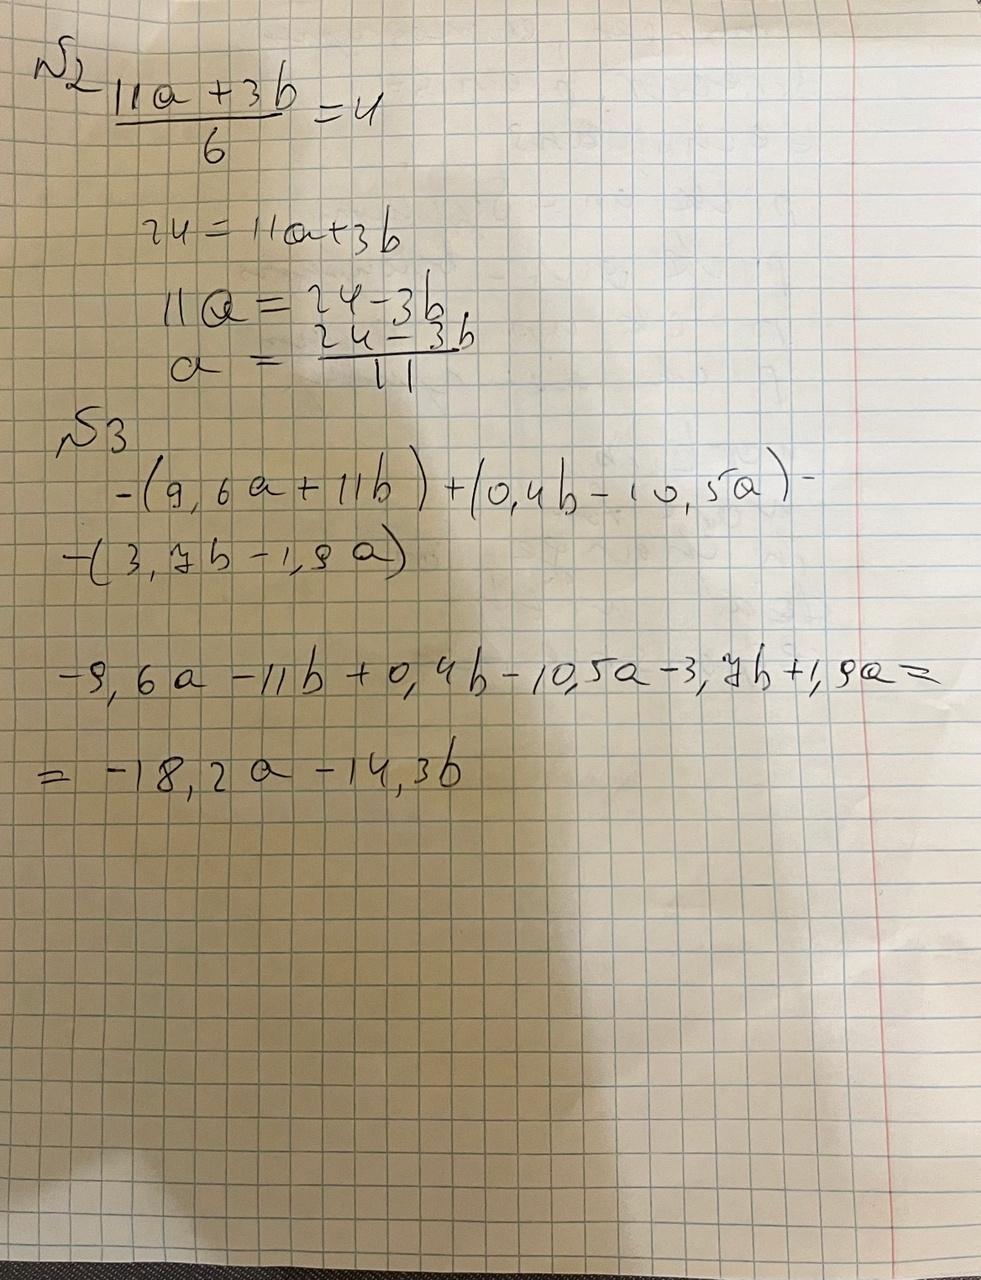 №2
(11a + 3b)/6 = 4
24 = 11a + 3b
11a = 24 - 3b
a = (24 - 3b)/11
№3
-(9,6a + 11b) + (0,4b - 10,5a) -
-(3,7b - 1,9a)
-9,6a - 11b + 0,4b - 10,5a - 3,7b + 1,9a =
= -18,2a - 14,3b